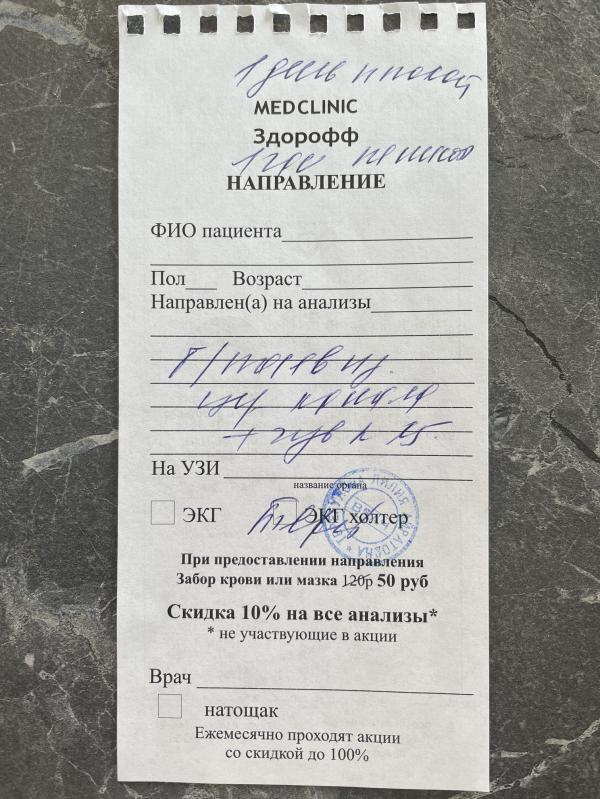 1 день плохой
MEDCLINIC
Здорофф
НАПРАВЛЕНИЕ
ФИО пациента
Пол Возраст
Направлен(а) на анализы
Б/посев из
цер канала
+ чув к
На УЗИ
название органа
ЭКГ ЭКГ холтер
При предоставлении направления
Забор крови или мазка 120р 50 руб
Скидка 10% на все анализы*
* не участвующие в акции
Врач
натощак
Ежемесячно проходят акции
со скидкой до 100%